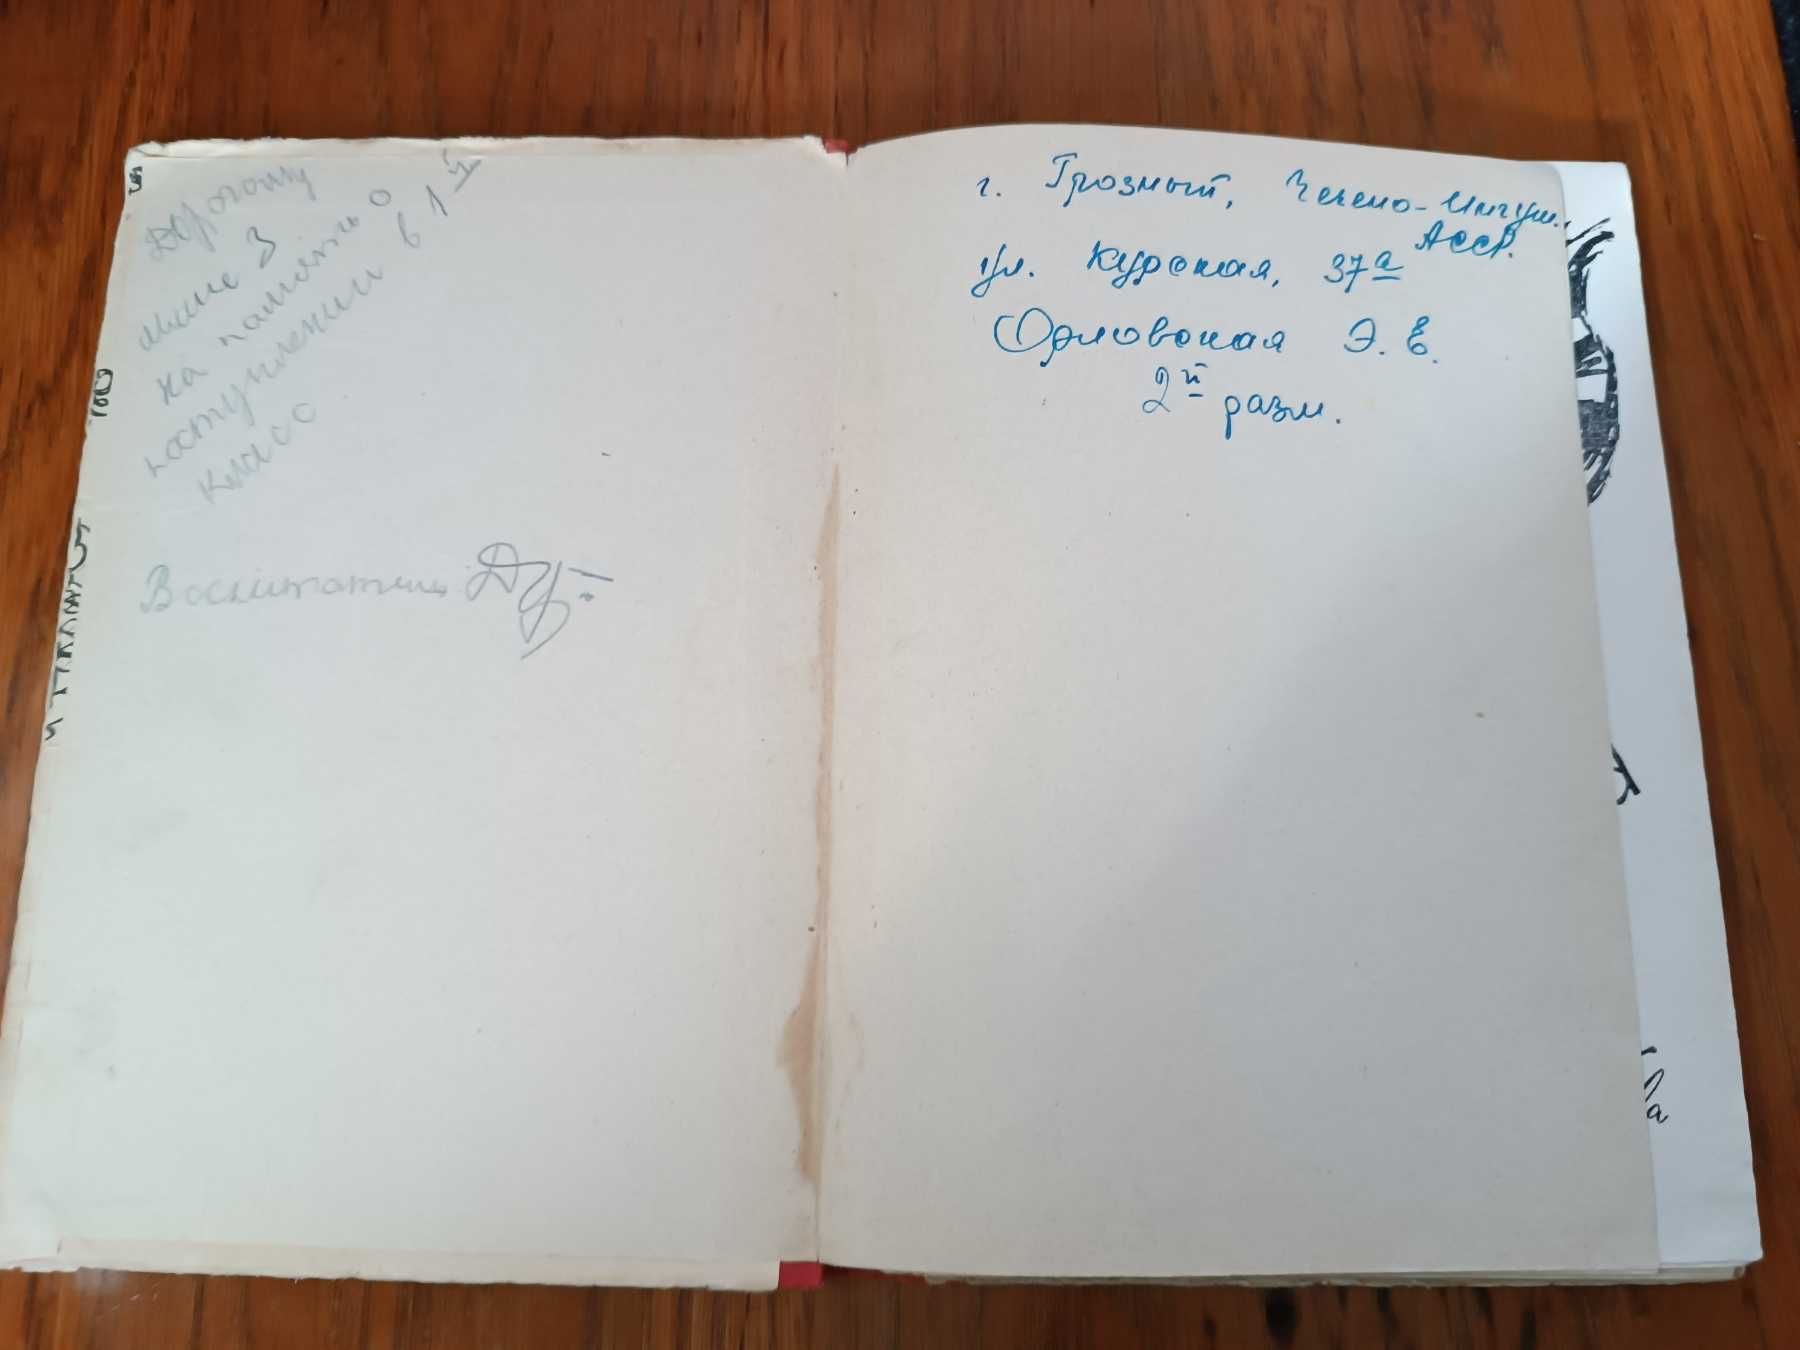 Дорогому
мише З
на память о
поступлении в 1й
класс
Воспитатель
г. Грозный, Чечено-Ингуш.
АССР.
ул. Курская, 37а
Орловская Э. Е.
2й разм.